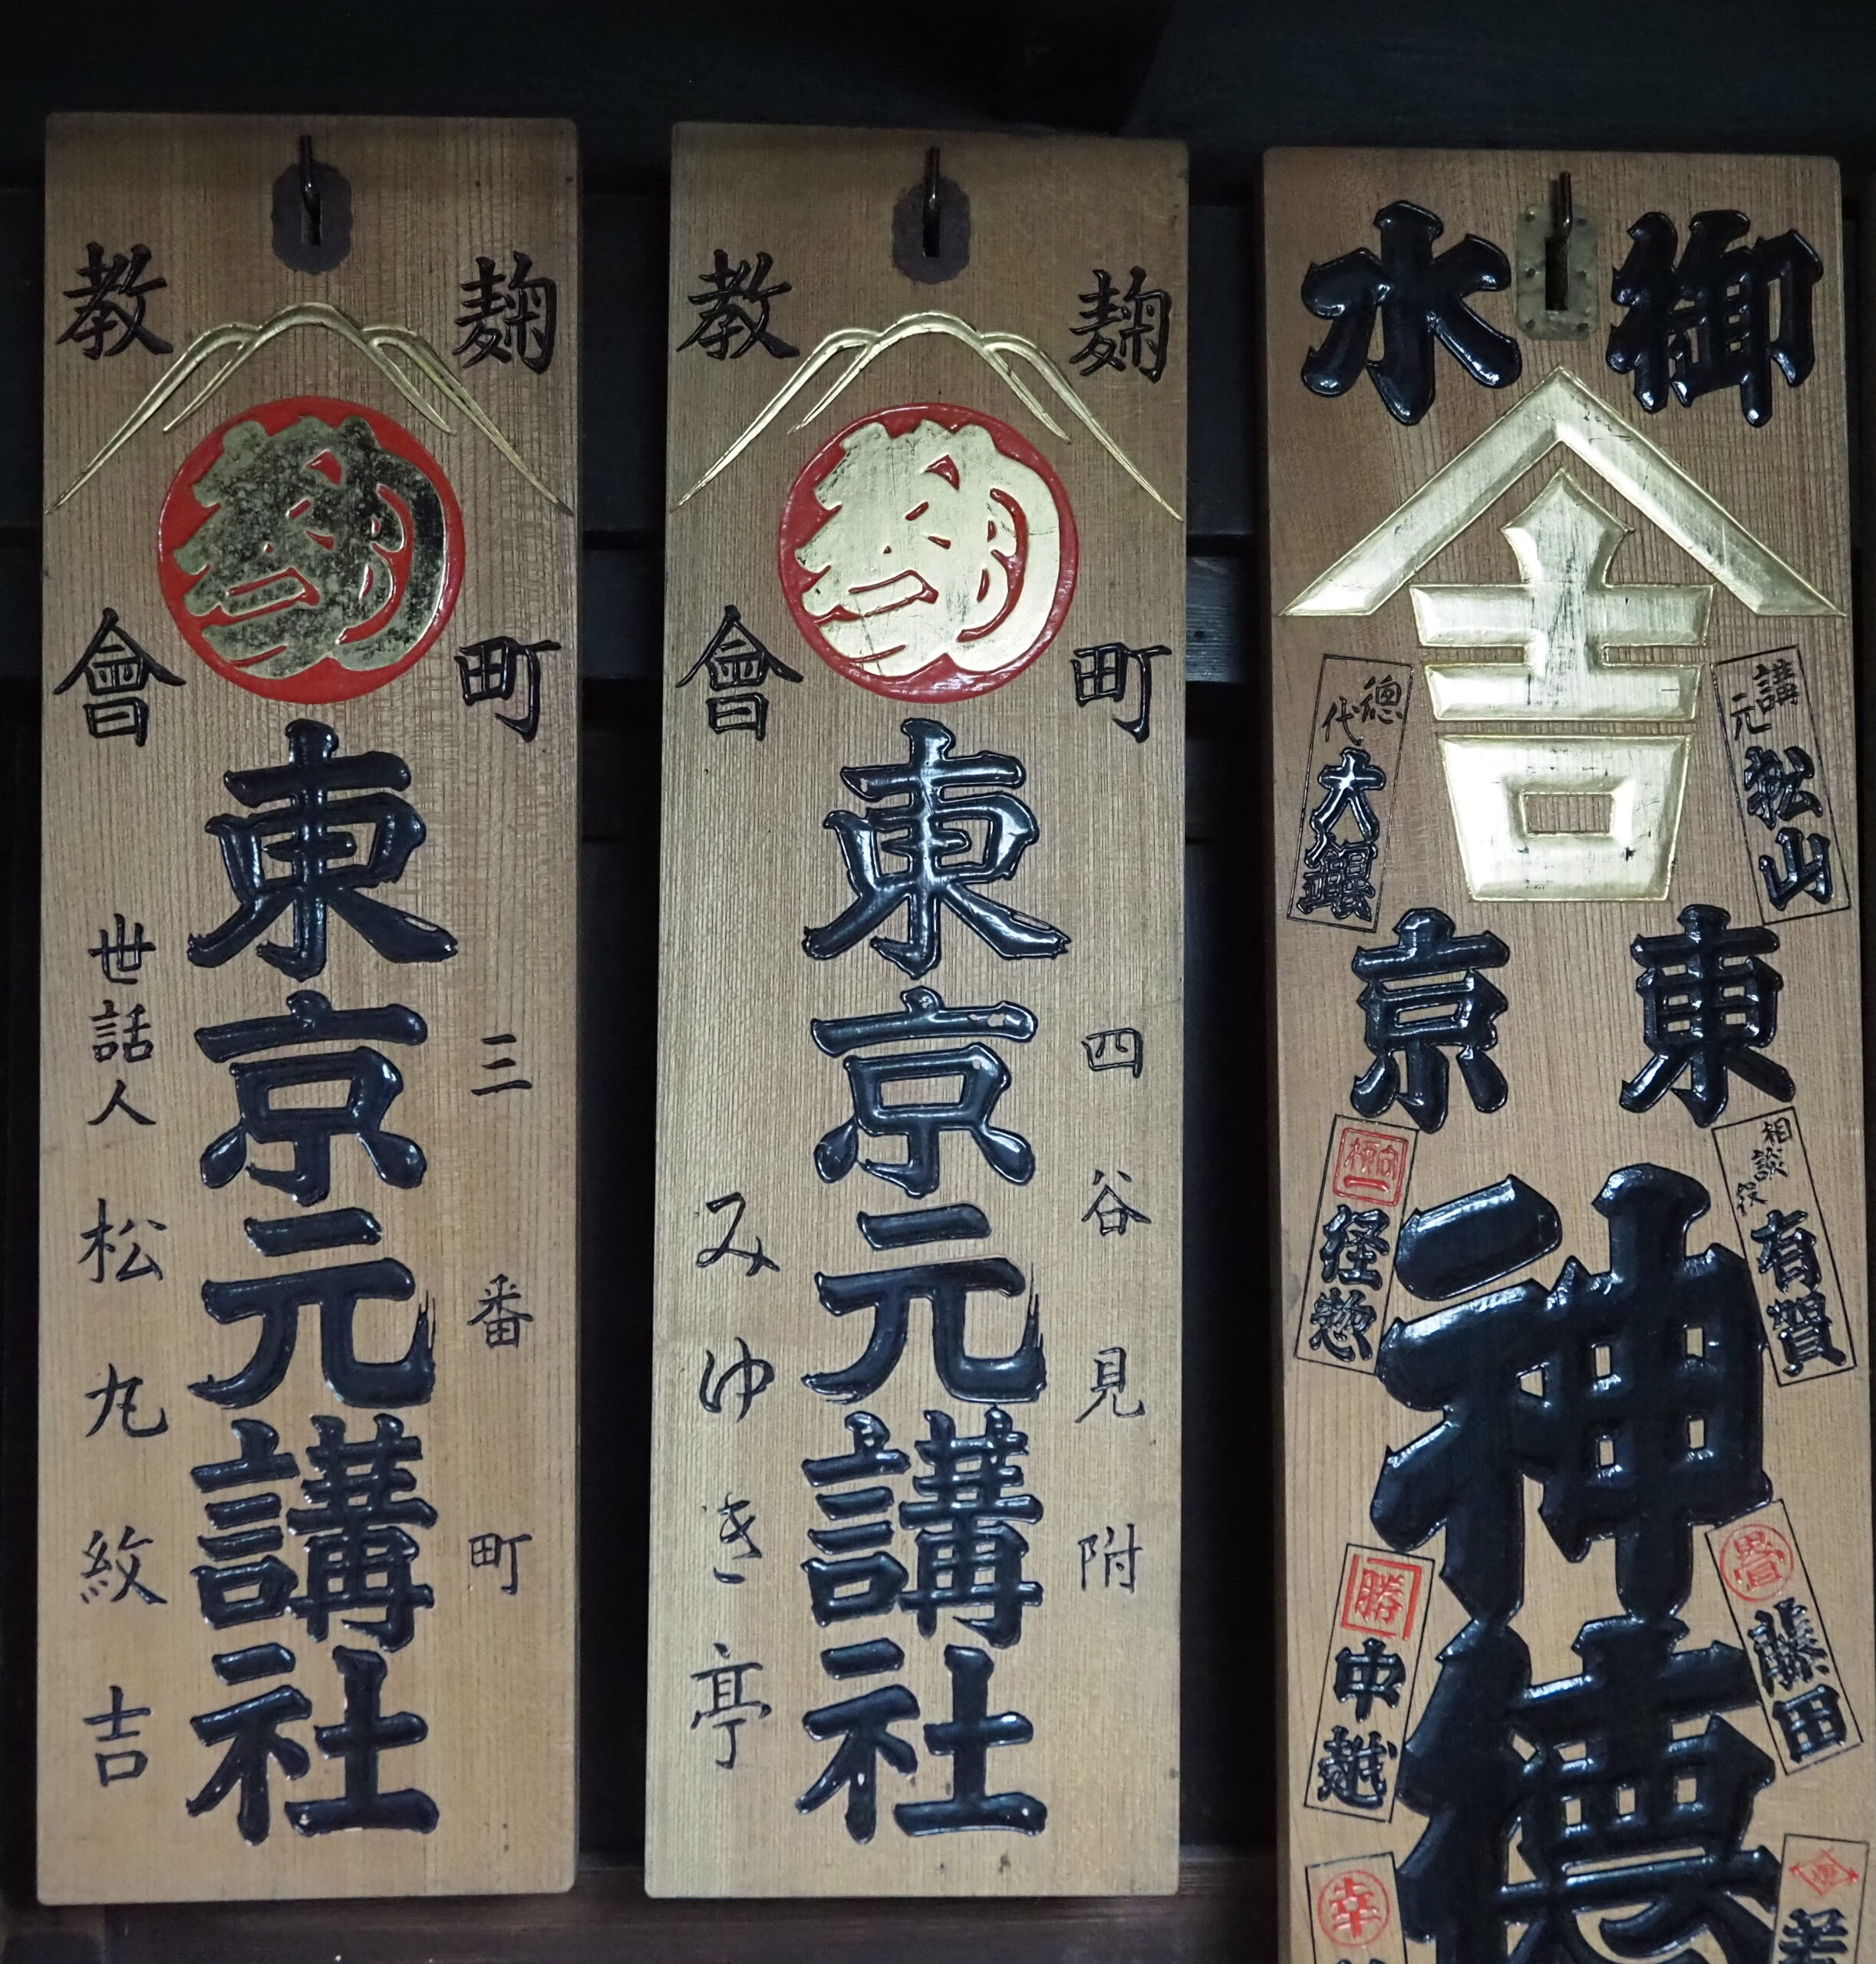 麹町
教會
東京元講社
三番町
世話人 松丸紋吉
麹町
教會
東京元講社
四谷見附
みゆき亭
御水
吉
東京
神徳
講元 松山
総代 大銀
相談役 有賀
経惣
畳 藤田
勝 中越
幸